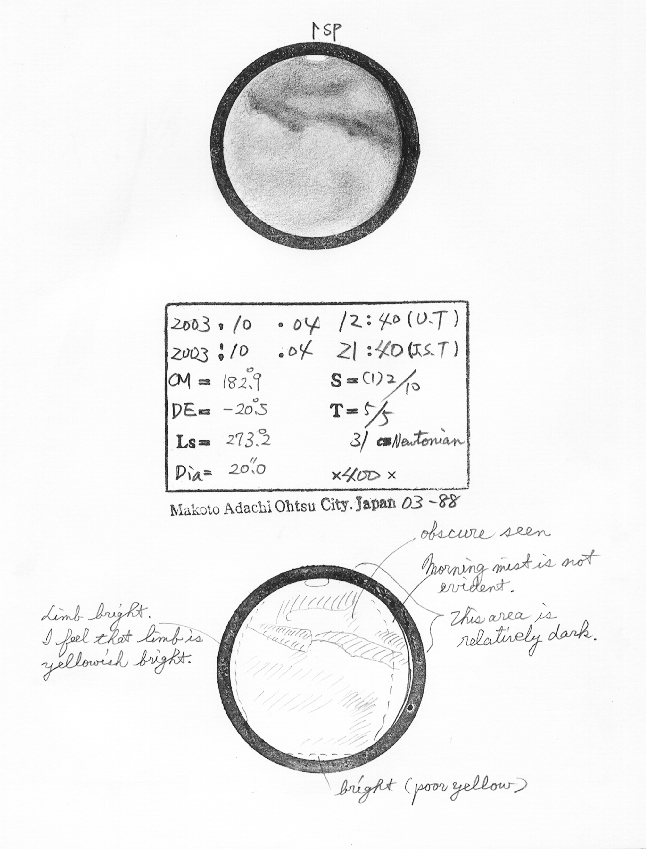 ↑SP
2003 : 10 . 04 12 : 40 (U.T)
2003 : 10 . 04 21 : 40 (J.S.T)
CM = 182.°9 S = (1) 2/10
DE = -20.°5 T = 5/5
Ls = 273.°2 31 cm Newtonian
Dia = 20.″0 ×400 ×
Makoto Adachi Ohtsu City. Japan 03-88
obscure seen
Morning mist is not
evident.
This area is
relatively dark.
Limb bright.
I feel that limb is
yellowish bright.
bright (poor yellow)